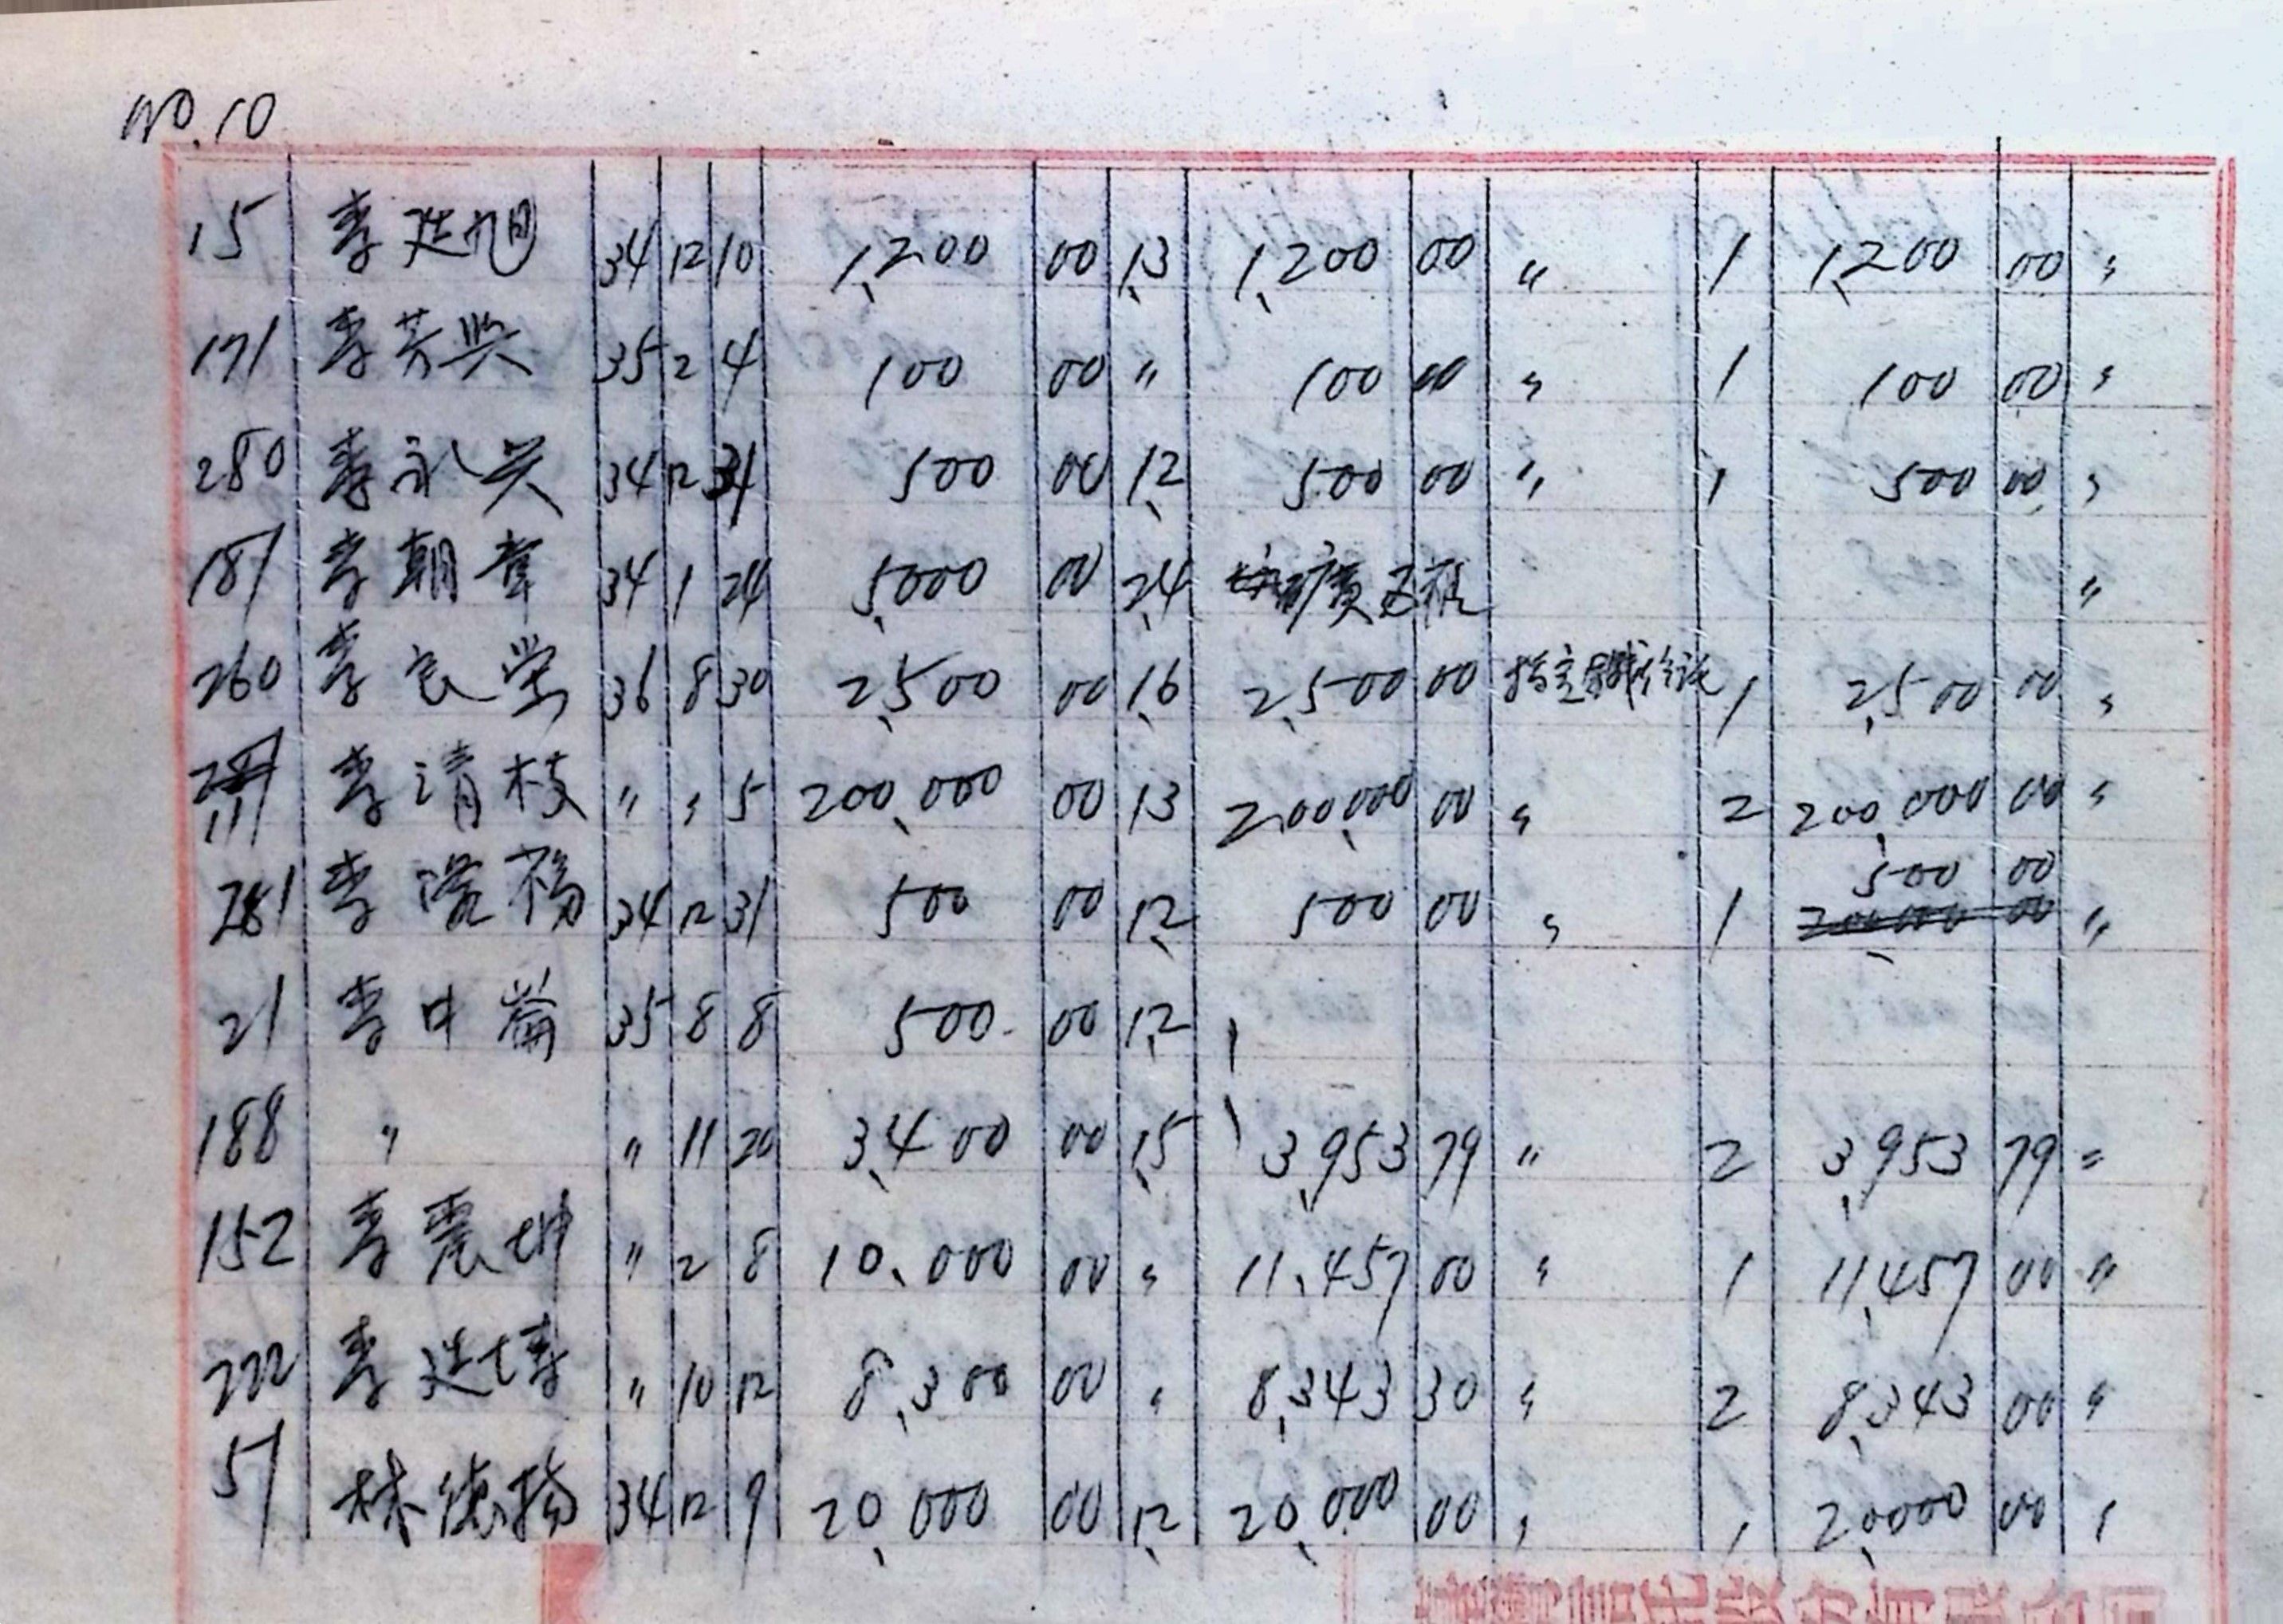 NO.10
15 李廷旭 34 12 10 1,200 00 1,3 1,200 00 〃 1 1,200 00 〃
171 李芳興 35 2 4 100 00 〃 100 00 〃 1 100 00 〃
280 李永兴 34 12 31 500 00 1,2 500 00 〃 1 500 00 〃
181 李朝章 34 1 24 5,000 00 2,4 〃
260 李良学 36 8 30 2,500 00 1,6 2,500 00 1 2,500 00 〃
111 李清枝 〃 〃 5 200,000 00 13 200,000 00 〃 2 200,000 00 〃
500 00
281 李 34 12 31 500 00 1,2 500 00 〃 1 200,000 00 〃
21 李中崙 35 8 8 500 00 1,2
188 〃 〃 11 20 3,400 00 1,5 3,953 79 〃 2 3,953 79 〃
152 李震坤 〃 2 8 10,000 00 〃 11,457 00 〃 1 11,457 00 〃
222 李廷 〃 10 12 8,300 00 〃 8,343 30 〃 2 8,343 00 〃
51 林德揚 34 12 9 20,000 00 1,2 20,000 00 〃 1 20,000 00 〃